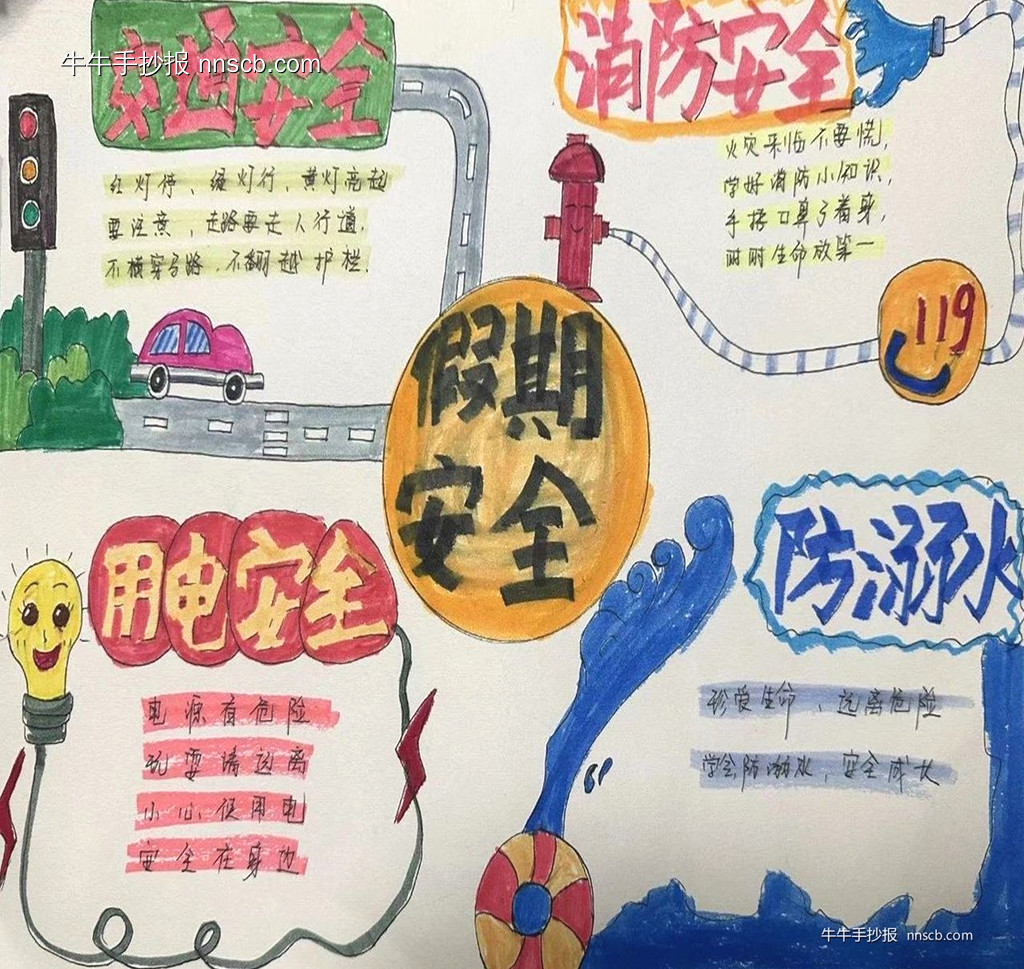 牛牛手抄报 nnscb.com
交通安全
红灯停、绿灯行、黄灯亮起
要注意，走路要走人行道，
不横穿马路，不翻越护栏.
消防安全
火灾来临不要慌，
学好消防小知识，
手捂口鼻弯着身，
时时生命放第一
119
假期
安全
用电安全
电源有危险
玩耍请远离
小心使用电
安全在身边
防溺水
珍爱生命、远离危险
学会防溺水，安全成长
牛牛手抄报 nnscb.com